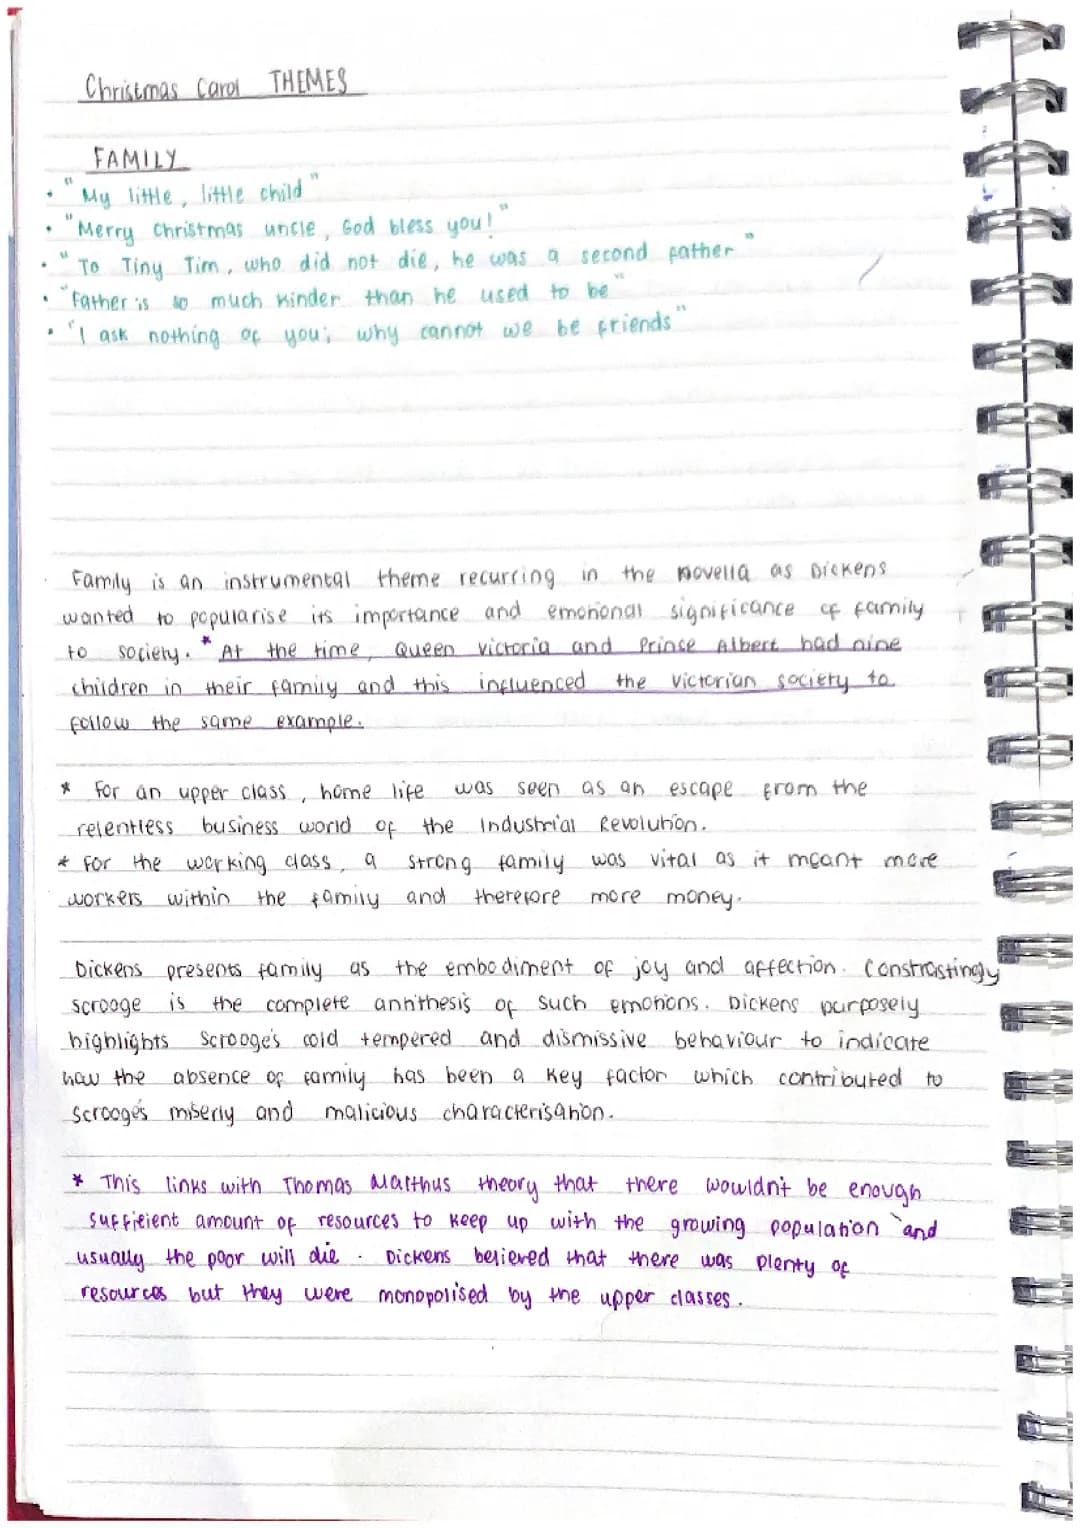 Christmas Carol THEMES
FAMILY
• "My little, little child"
• "Merry Christmas uncle, God bless you!"
• "To Tiny Tim, who did not die, he was a second father"
• "Father is so much kinder than he used to be"
• "I ask nothing of you; why cannot we be friends"
Family is an instrumental theme recurring in the novella as Dickens
wanted to popularise its importance and emotional significance of family
to society. * At the time, Queen Victoria and Prince Albert had nine
children in their family and this influenced the Victorian society to
follow the same example.
* For an upper class, home life was seen as an escape from the
relentless business world of the Industrial Revolution.
* For the working class, a strong family was vital as it meant more
workers within the family and therefore more money.
Dickens presents family as the embodiment of joy and affection. Constrastingly
scrooge is the complete antithesis of such emotions. Dickens purposely
highlights Scrooge's cold tempered and dismissive behaviour to indicate
how the absence of family has been a key factor which contributed to
Scrooge's miserly and malicious characterisation.
* This links with Thomas Malthus theory that there wouldn't be enough
sufficient amount of resources to keep up with the growing population and
usually the poor will die. Dickens believed that there was plenty of
resources but they were monopolised by the upper classes.